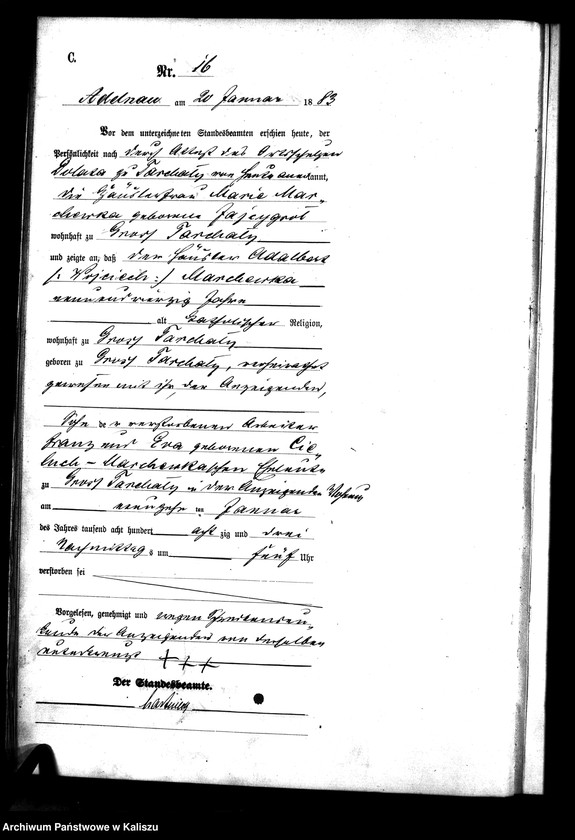 C.
Nr. 16
Adelnau am 20 Januar 1883
Vor dem unterzeichneten Standesbeamten erschien heute, der
Persönlichkeit nach durch Attest des Ortsschulzen
Dolata zu Tarchaly von heute anerkannt,
die Häuslerfrau Marie Mar-
chewka geborene Zajcygrob
wohnhaft zu Gross Tarchaly
und zeigte an, daß der Häusler Adalbert
/: Wojciech :/ Marchewka
neunundvierzig Jahre
alt Katholischer Religion,
wohnhaft zu Gross Tarchaly
geboren zu Gross Tarchaly, verheirathet
gewesen mit ihr, der Anzeigenden,
Sohn der verstorbenen Arbeiter
Franz und Eva geborenen Cie-
luch-Marchewkaschen Eheleute
zu Gross Tarchaly in der Anzeigenden Wohnung
am neunzehn ten Januar
des Jahres tausend acht hundert acht zig und drei
Nachmittags um fünf Uhr
verstorben sei
Vorgelesen, genehmigt und wegen Schreibensun-
kunde der Anzeigenden von derselben
unterkreuzt + + +
Der Standesbeamte.
Archiwum Państwowe w Kaliszu